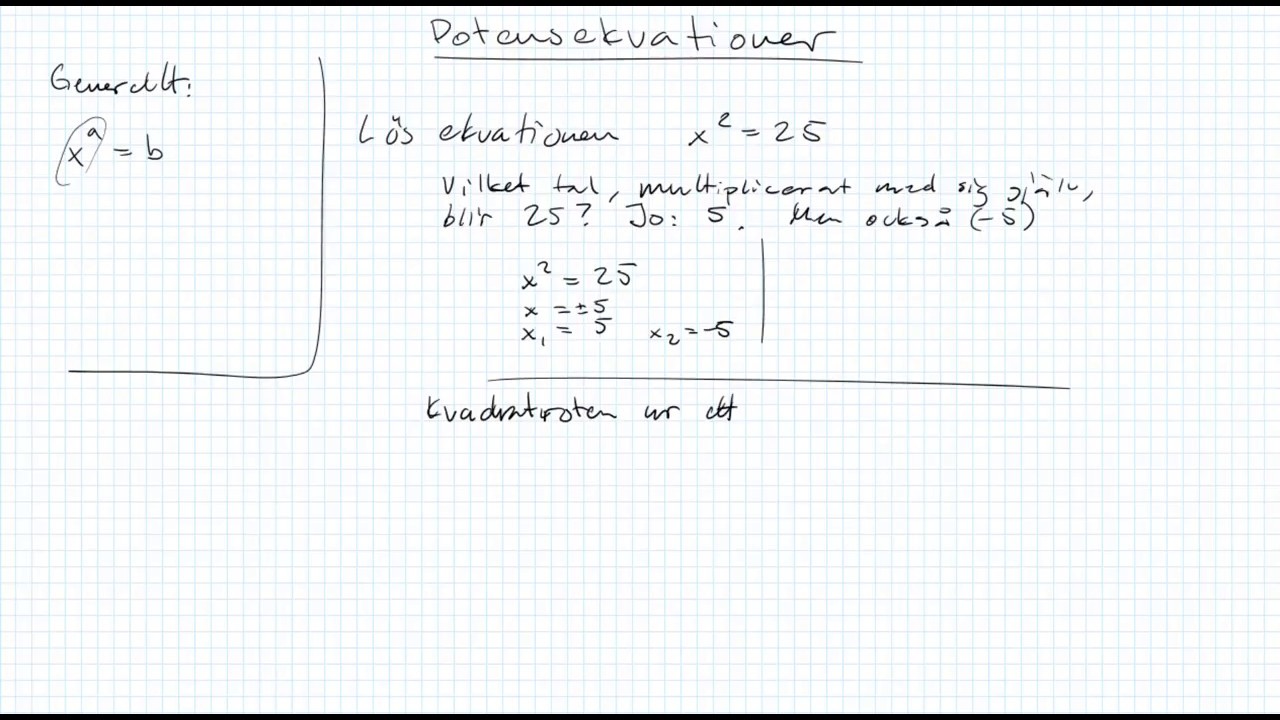 Potensekvationer
Generellt:
x^a = b
Lös ekvationen x² = 25
Vilket tal, multiplicerat med sig själv,
blir 25? Jo: 5. Men också (-5)
x² = 25
x = ±5
x₁ = 5 x₂ = -5
Kvadratroten ur ett